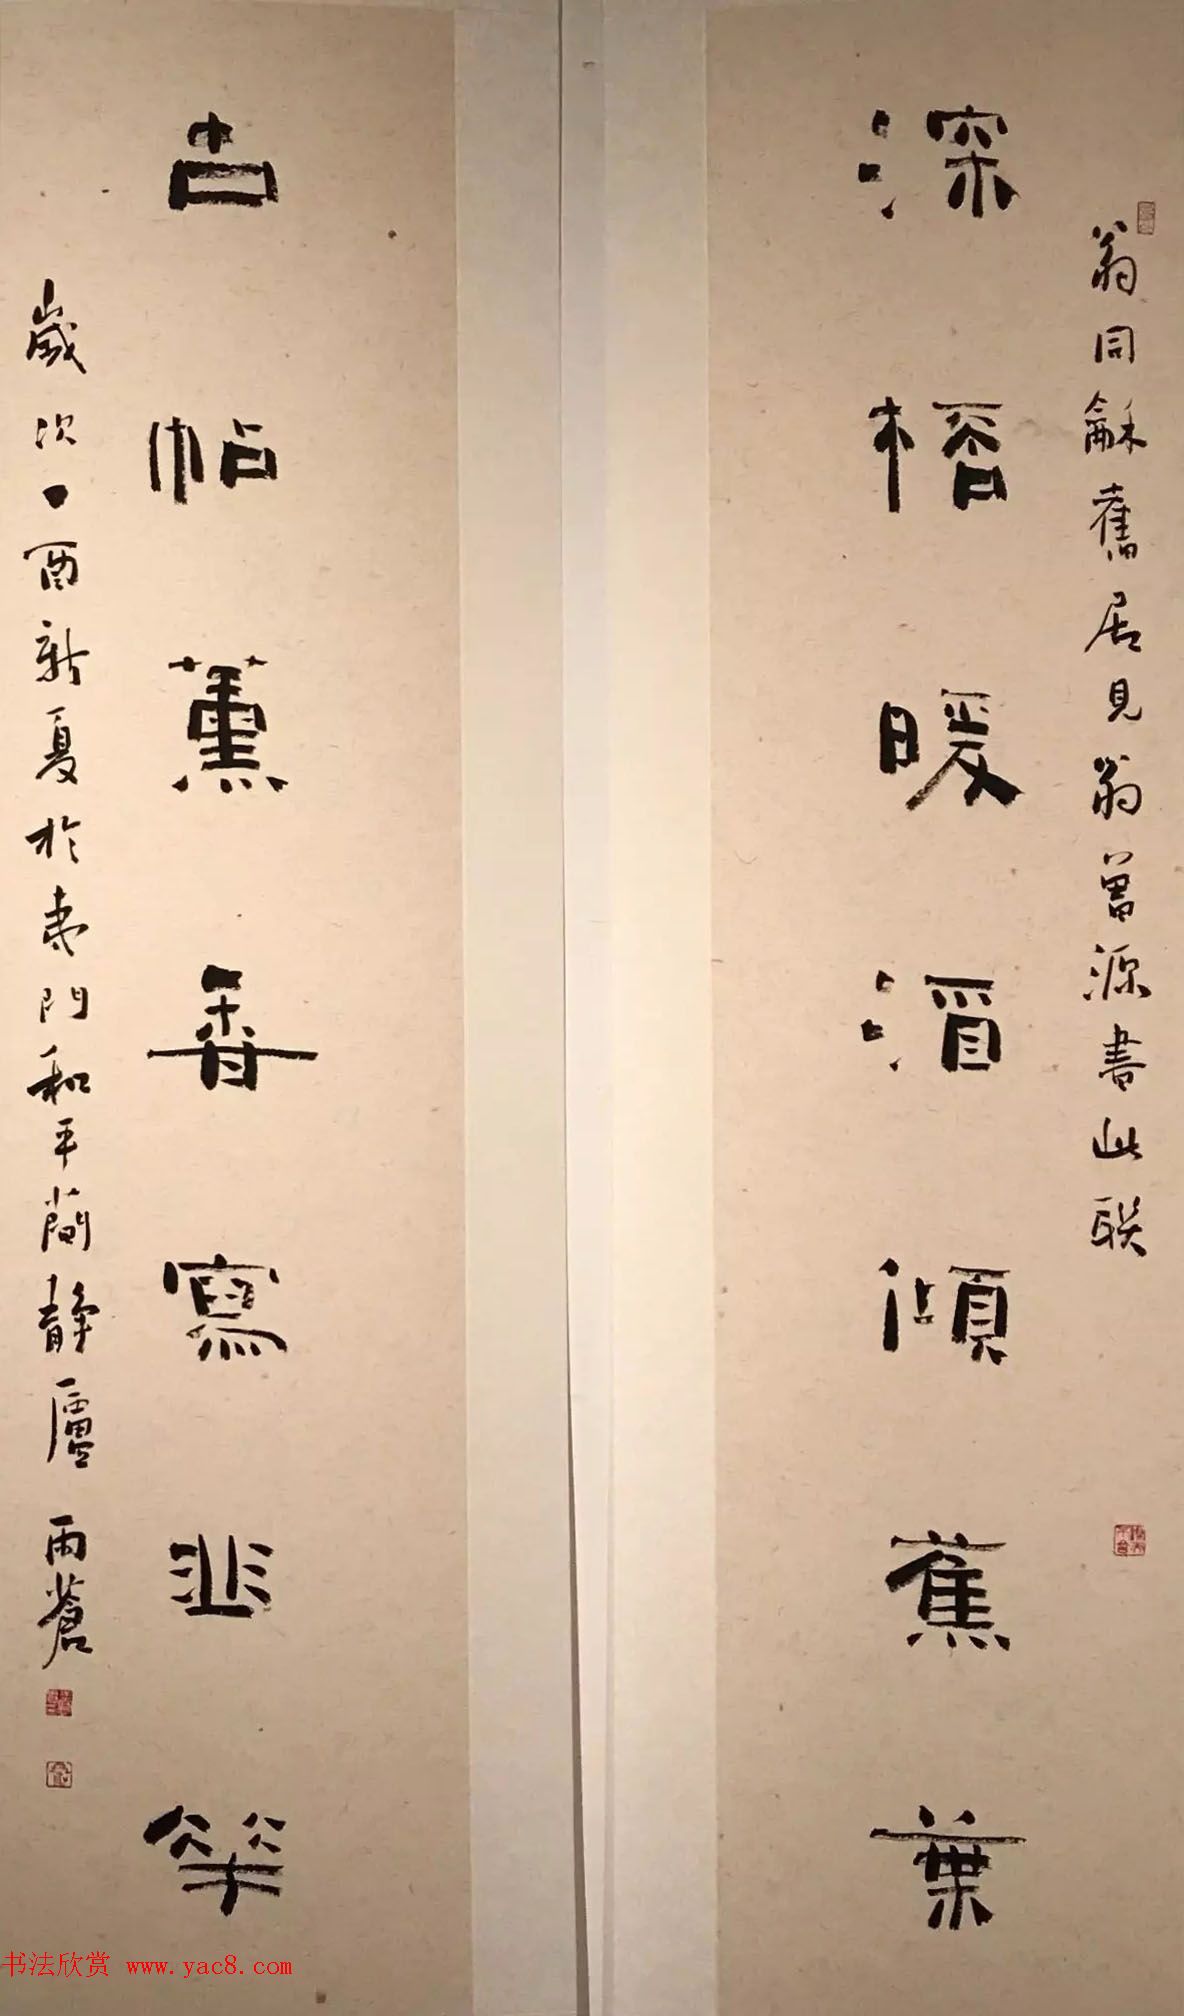 翁同龢舊居見翁曾源書此联
深桮暖酒傾蕉葉
古帖薰香寫韭華
歲次丁酉新夏於夷門和平簡静廬 雨蒼
书法欣赏 www.yac8.com